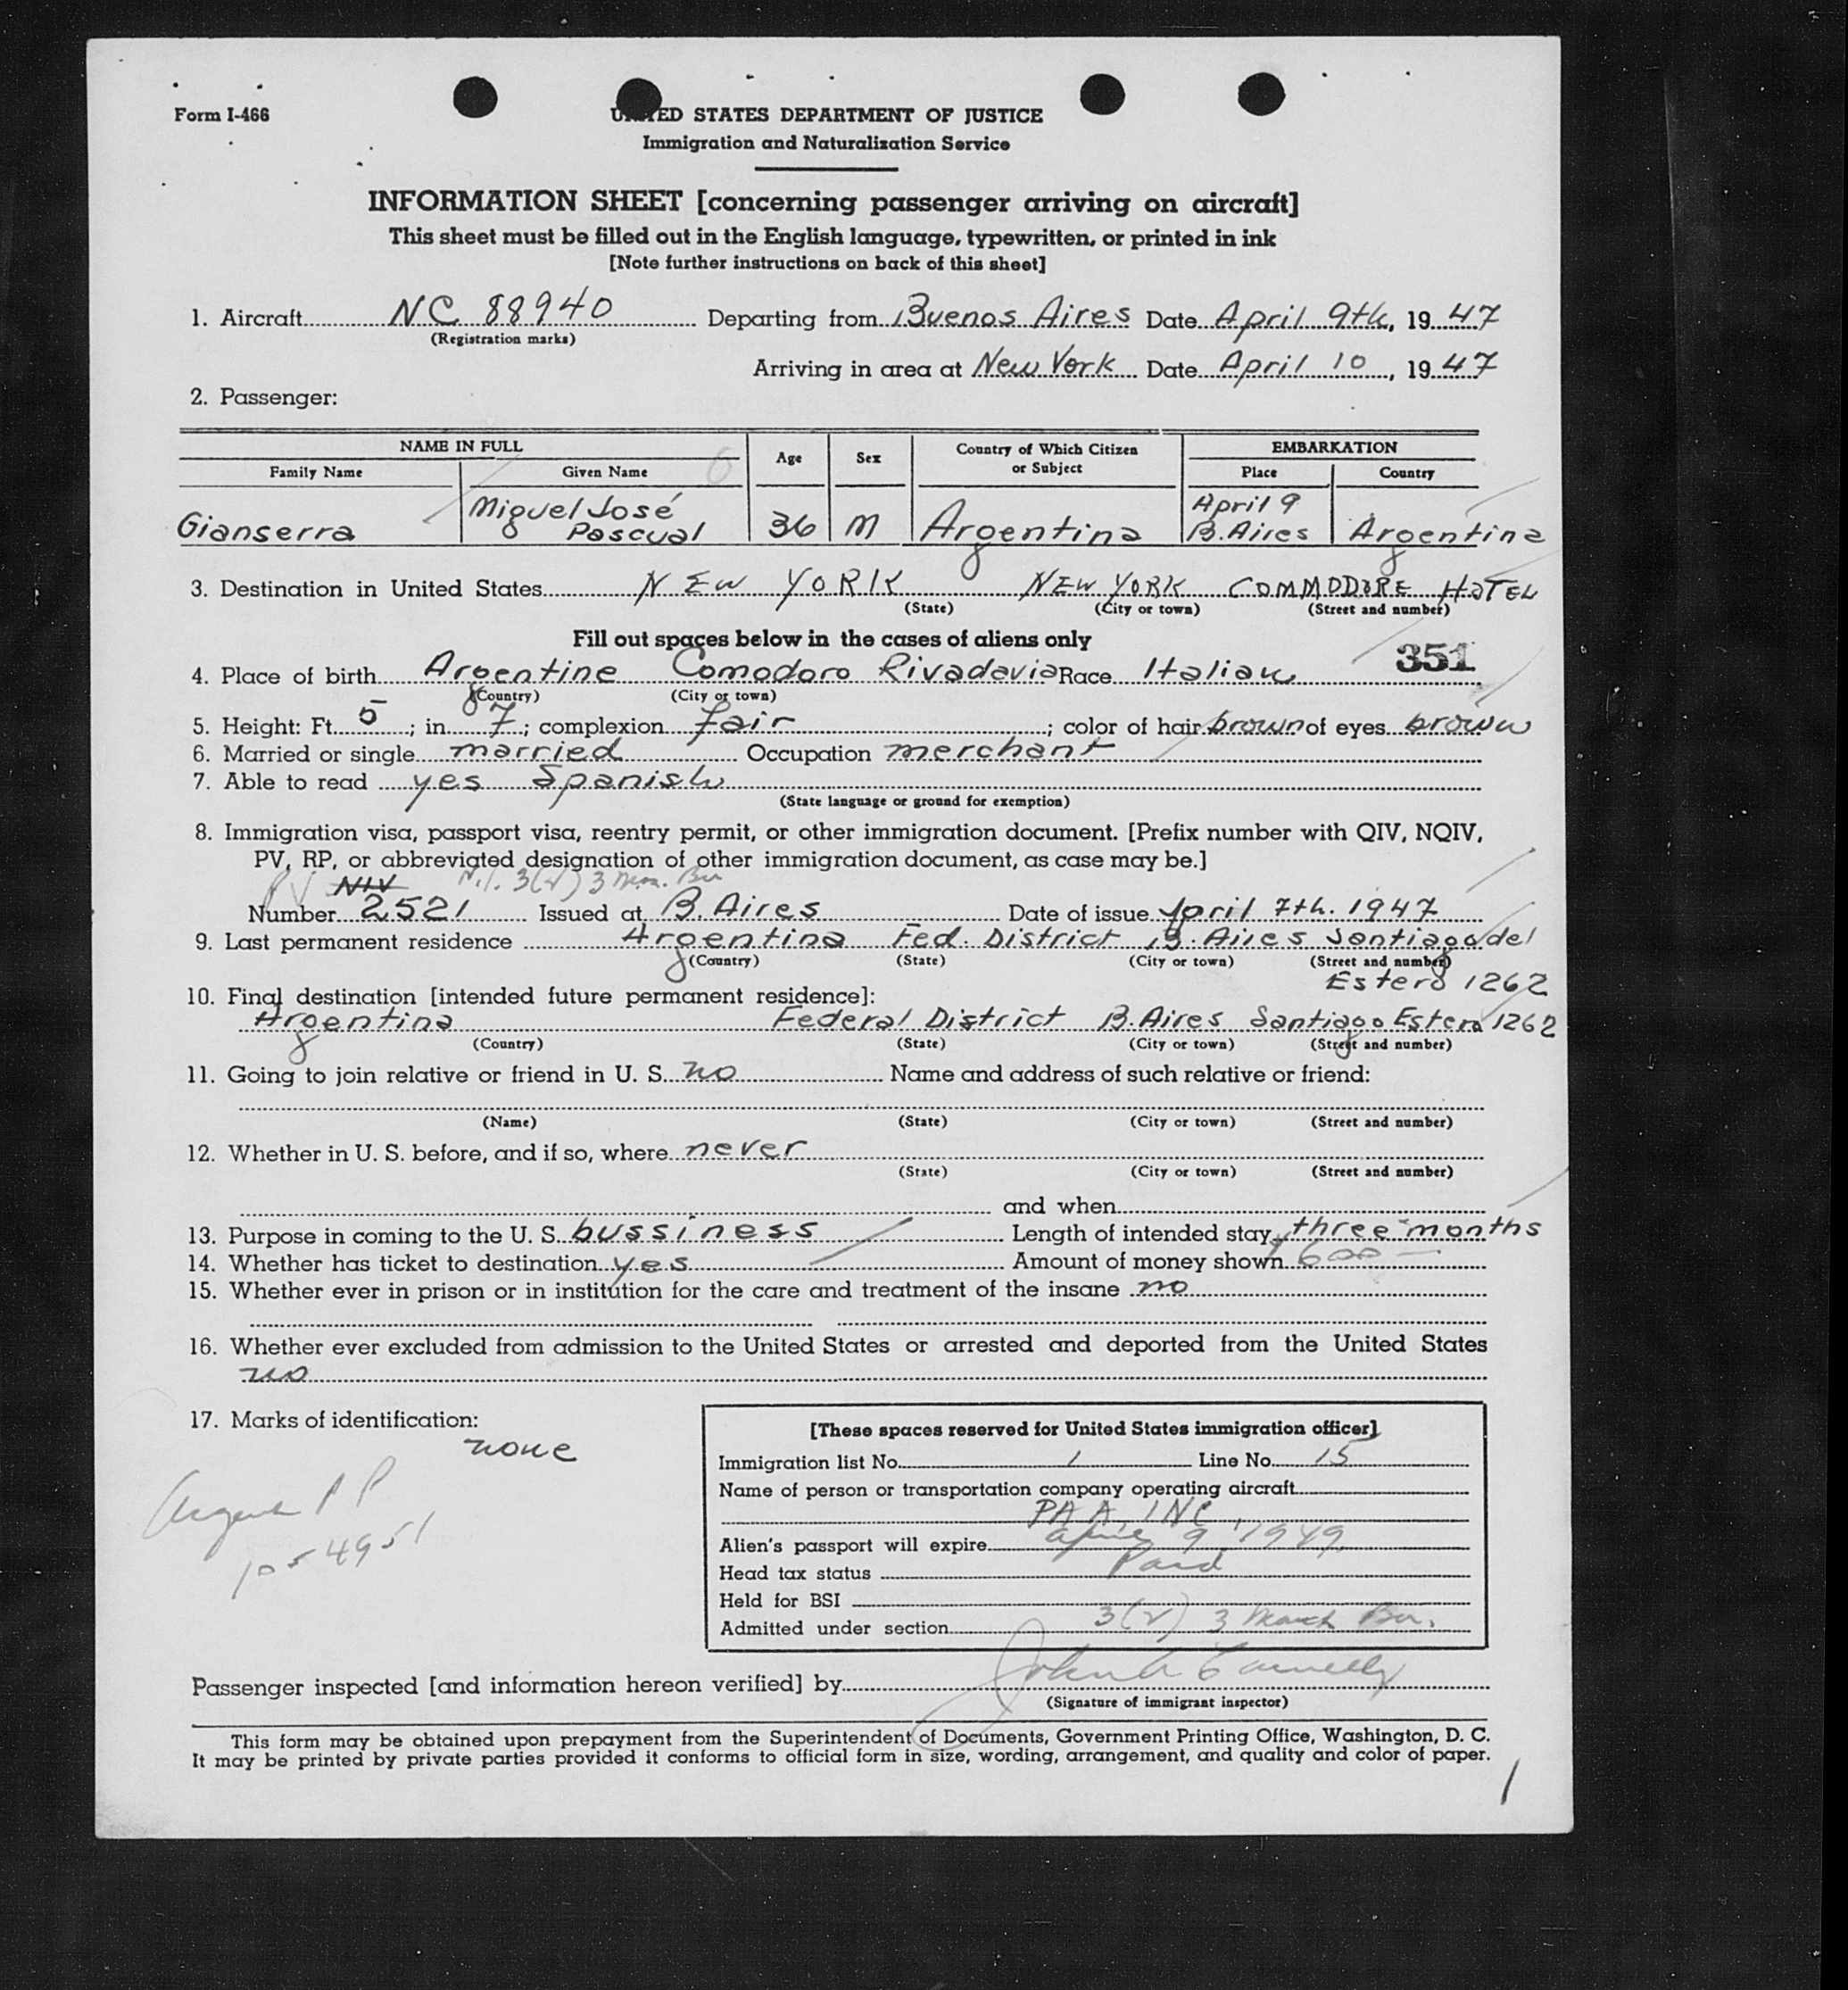 Form I-466
UNITED STATES DEPARTMENT OF JUSTICE
Immigration and Naturalization Service
INFORMATION SHEET [concerning passenger arriving on aircraft]
This sheet must be filled out in the English language, typewritten, or printed in ink
[Note further instructions on back of this sheet]
1. Aircraft NC 88940 Departing from Buenos Aires Date April 9th, 19 47
(Registration marks)
Arriving in area at New York Date April 10, 19 47
2. Passenger:
NAME IN FULL Age Sex Country of Which Citizen or Subject EMBARKATION
Family Name Given Name Place Country
Gianserra Miguel José Pascual 36 M Argentina April 9 B. Aires Argentina
3. Destination in United States NEW YORK NEW YORK COMMODORE HOTEL
(State) (City or town) (Street and number)
Fill out spaces below in the cases of aliens only
351
4. Place of birth Argentine Comodoro Rivadavia Race Italian
(Country) (City or town)
5. Height: Ft. 5; in. 7; complexion fair; color of hair brown of eyes brown
6. Married or single married Occupation merchant
7. Able to read yes Spanish
(State language or ground for exemption)
8. Immigration visa, passport visa, reentry permit, or other immigration document. [Prefix number with QIV, NQIV,
PV, RP, or abbreviated designation of other immigration document, as case may be.]
PV NIV 3(2) 3
Number 2521 Issued at B. Aires Date of issue April 7th. 1947
9. Last permanent residence Argentina Fed. District B. Aires Santiago del
(Country) (State) (City or town) (Street and number)
Estero 1262
10. Final destination [intended future permanent residence]:
Argentina Federal District B. Aires Santiago Estero 1262
(Country) (State) (City or town) (Street and number)
11. Going to join relative or friend in U. S. no Name and address of such relative or friend:
(Name) (State) (City or town) (Street and number)
12. Whether in U. S. before, and if so, where never
(State) (City or town) (Street and number)
and when
13. Purpose in coming to the U. S. bussiness Length of intended stay three months
14. Whether has ticket to destination yes Amount of money shown 600 —
15. Whether ever in prison or in institution for the care and treatment of the insane no
16. Whether ever excluded from admission to the United States or arrested and deported from the United States
no
17. Marks of identification:
none
P P
1054951
[These spaces reserved for United States immigration officer]
Immigration list No. 1 Line No. 15
Name of person or transportation company operating aircraft
PAA, INC.
Alien's passport will expire April 9, 1949
Head tax status Paid
Held for BSI
Admitted under section 3(2) 3
Passenger inspected [and information hereon verified] by
(Signature of immigrant inspector)
This form may be obtained upon prepayment from the Superintendent of Documents, Government Printing Office, Washington, D. C.
It may be printed by private parties provided it conforms to official form in size, wording, arrangement, and quality and color of paper.
1